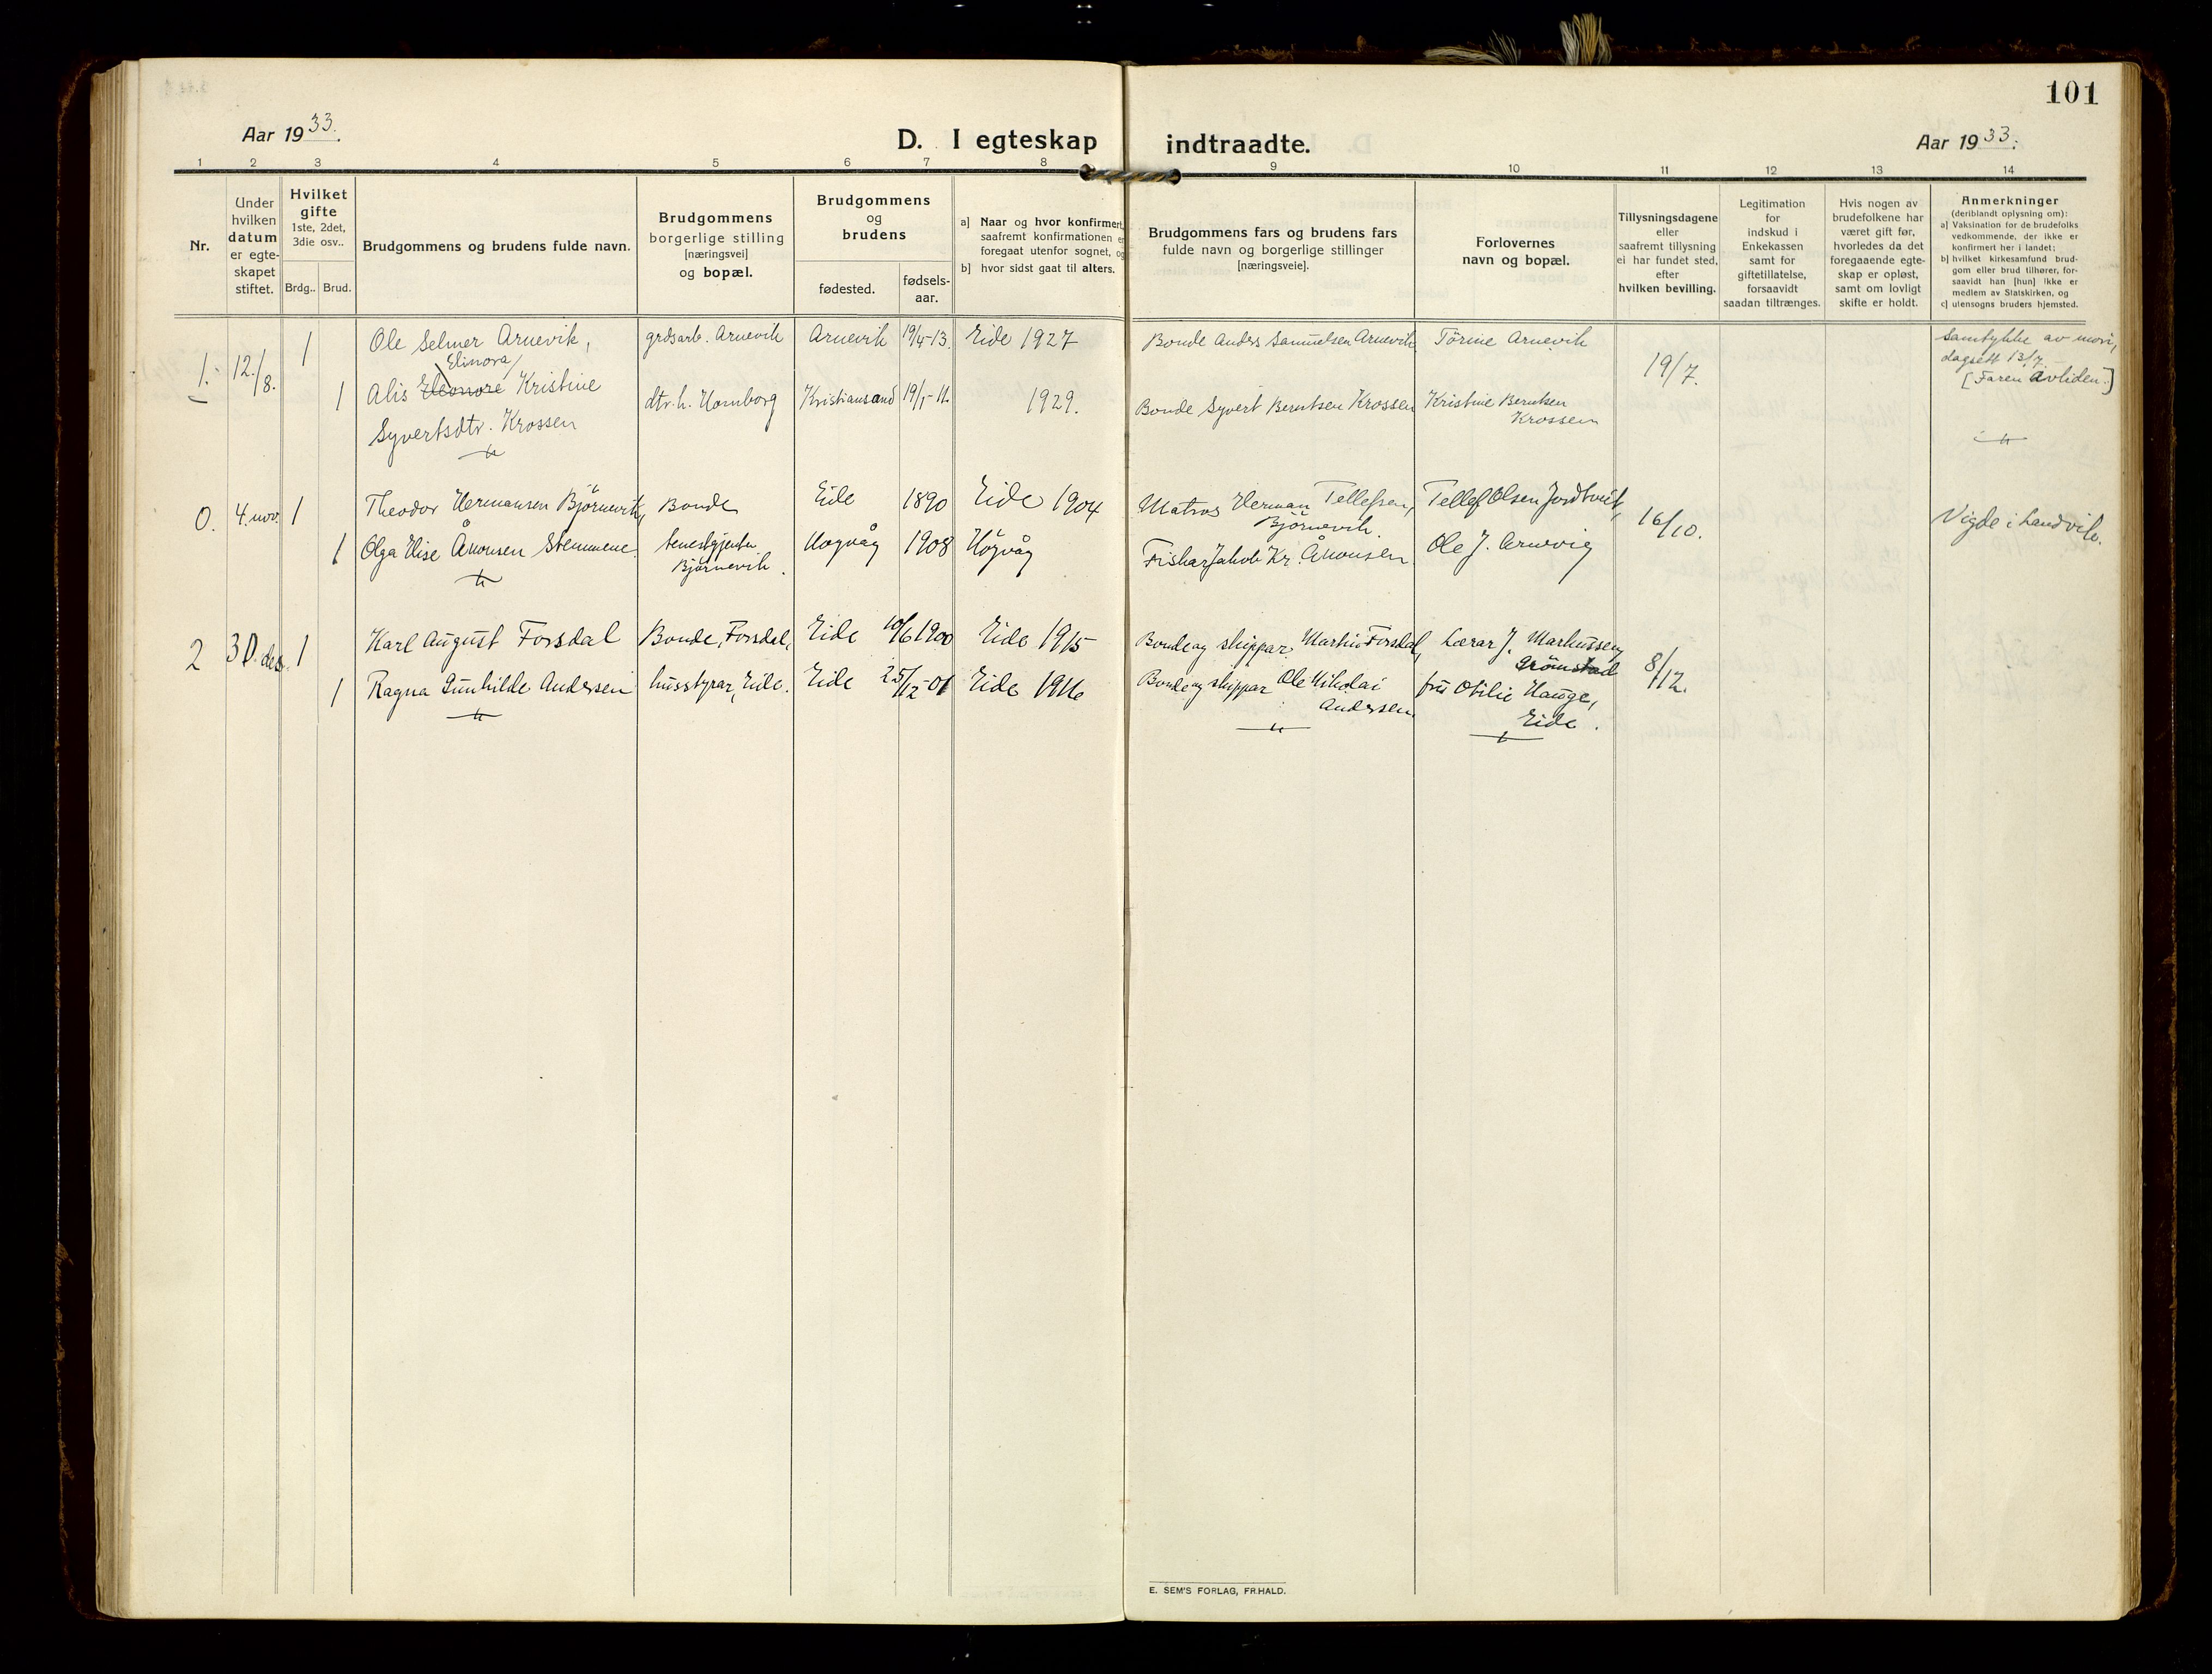 101
Aar 1933.
D. I egteskap indtraadte.
Aar 1933.
1 2 3 4 5 6 7 8 9 10 11 12 13 14
Nr.
Under hvilken datum er egte- skapet stiftet.
Hvilket gifte 1ste, 2det, 3die osv..
Brdg.. Brud.
Brudgommens og brudens fulde navn.
Brudgommens borgerlige stilling [næringsvei] og bopæl.
Brudgommens og brudens
fødested. fødsels- aar.
a] Naar og hvor konfirmert, saafremt konfirmationen er foregaat utenfor sognet, og
b] hvor sidst gaat til alters.
Brudgommens fars og brudens fars fulde navn og borgerlige stillinger [næringsveie].
Forlovernes navn og bopæl.
Tillysningsdagene eller saafremt tillysning ei har fundet sted, efter hvilken bevilling.
Legitimation for indskud i Enkekassen samt for giftetillatelse, forsaavidt saadan tiltrænges.
Hvis nogen av brudefolkene har været gift før, hvorledes da det foregaaende egte- skap er opløst, samt om lovligt skifte er holdt.
Anmerkninger (deriblandt oplysning om):
a] Vaksination for de brudefolks vedkommende, der ikke er konfirmert her i landet;
b] hvilket kirkesamfund brud- gom eller brud tilhører, for- saavidt han [hun] ikke er medlem av Statskirken, og
c] utensogns bruders hjemsted.
1. 12./8. 1 Ole Selmer Arnevik, grdsarb. Arnevik Arnevik 19/4-13. Eide 1927 Bonde Anders Samuelsen Arnevik Törine Arnevik 19/7. Samtykke av mori, dagsett 13/7. [Faren avliden.]
Elinora
1 Alis Eleonore Kristine Syvertsdtr. Krossen dtr. h. Homborg Kristiansand 19/1-11. 1929. Bonde Syvert Berntsen Krossen Kristine Berntsen Krossen
0. 4. nov. 1 Theodor Hermansen Björnevik, Bonde Eide 1890 Eide 1904 Matros Herman Tellefsen, Björnevik. Tellef Olsen Jordtveit, 16/10. Vigde i Landvik.
1 Olga Elise Åkonsen Stemmene. tenestgjenta Bjørnevik. Høgvåg 1908 Högvåg Fiskar Jakob Kr. Åkonsen. Ole J. Arnevig
2 30. des. 1 Karl August Forsdal Bonde, Forsdal, Eide 10/6 1900 Eide 1915 Bonde og skippar Martin Forsdal, Lærar J. Markussen, Grömstad 8/12.
1 Ragna Gunhilde Andersen husstyrar, Eide. Eide 25/12-01 Eide 1916 Bonde og skippar Ole Nikolai Andersen. frü Otilie Hauge, Eide.
E. SEM'S FORLAG, FR.HALD.